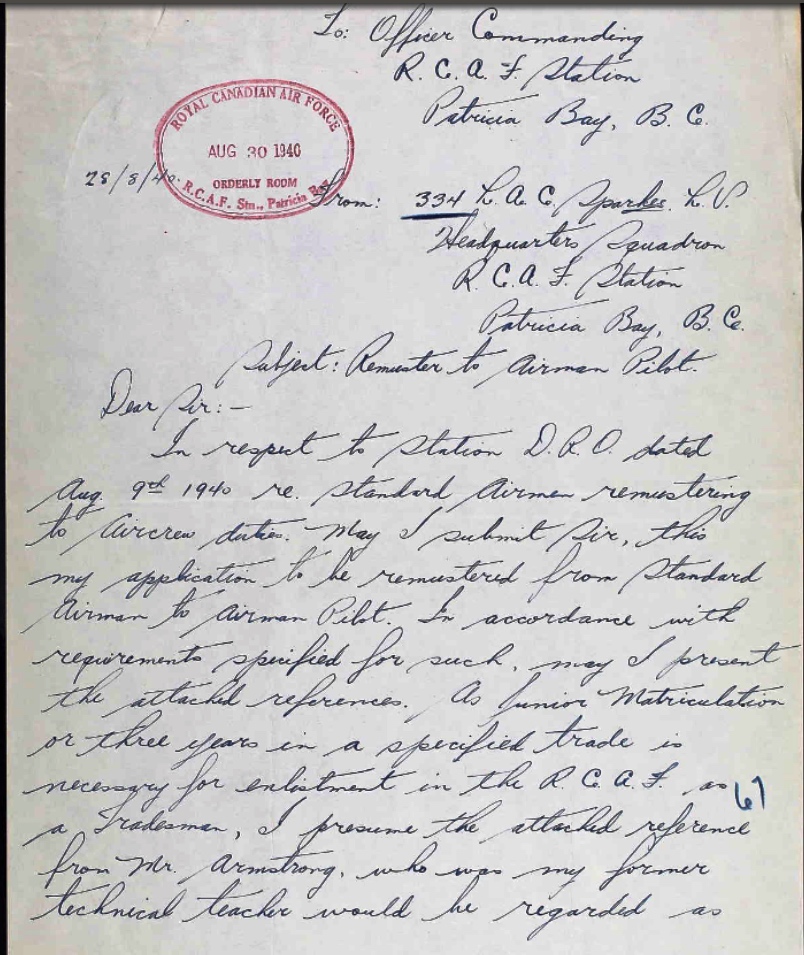 To: Officer Commanding
R. C. A. F. Station
Patricia Bay, B. C.
ROYAL CANADIAN AIR FORCE
AUG 30 1940
ORDERLY ROOM
R.C.A.F. Stn., Patricia Bay
28/8/40.
From: 334 L. A. C. Sparkes. L. V.
Headquarters Squadron
R. C. A. F. Station
Patricia Bay, B. C.
Subject: Remuster to Airman Pilot.
Dear Sir: –
In respect to Station D. R. O. dated
Aug. 9th 1940 re. Standard Airmen remustering
to Aircrew duties. May I submit Sir, this
my application to be remustered from Standard
Airman to Airman Pilot. In accordance with
requirements specified for such, may I present
the attached references. As Junior Matriculation
or three years in a specified trade is
necessary for enlistment in the R. C. A. F. as
67
a Tradesman, I presume the attached reference
from Mr. Armstrong, who was my former
technical teacher would be regarded as